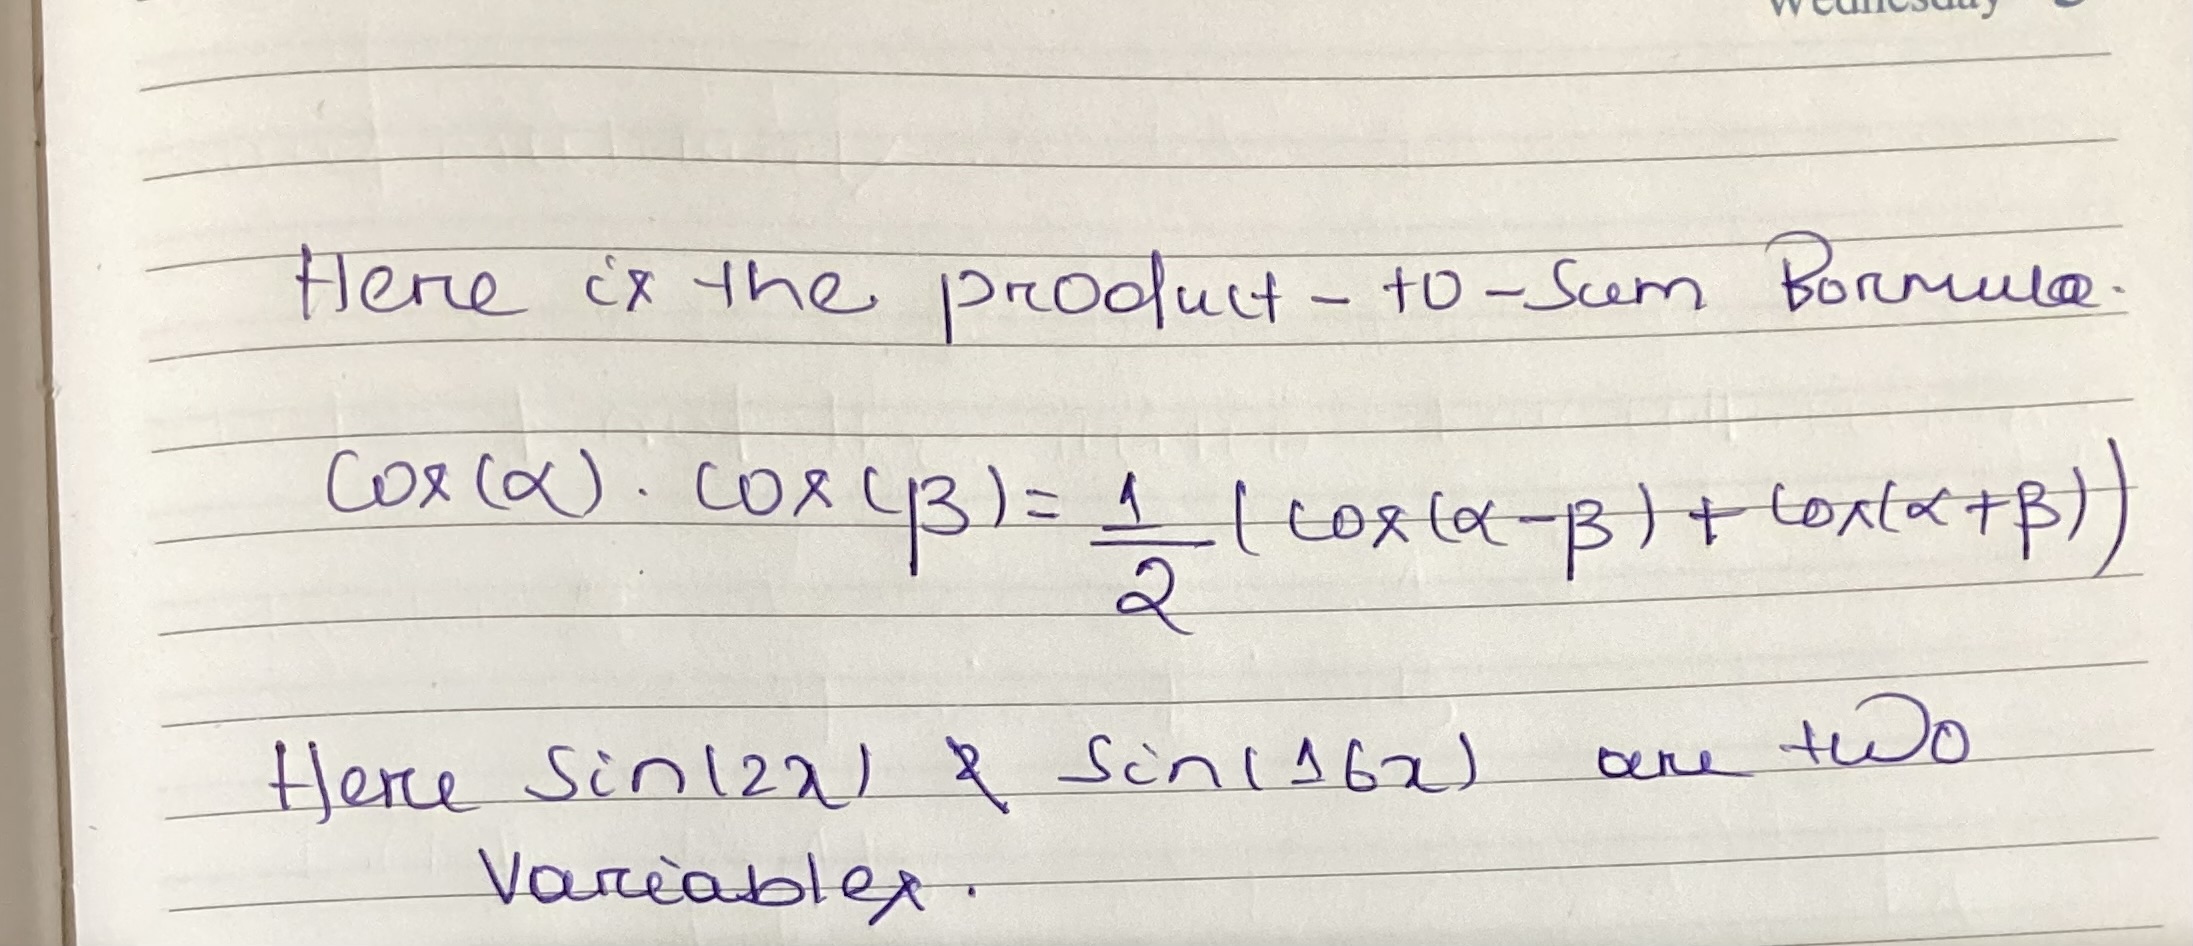 Wednesday
Here is the product-to-sum formula.
cos(α). cos(β) = 1/2 (cos(α-β) + cos(α+β))
Here sin(2x) & sin(16x) are two
variables.